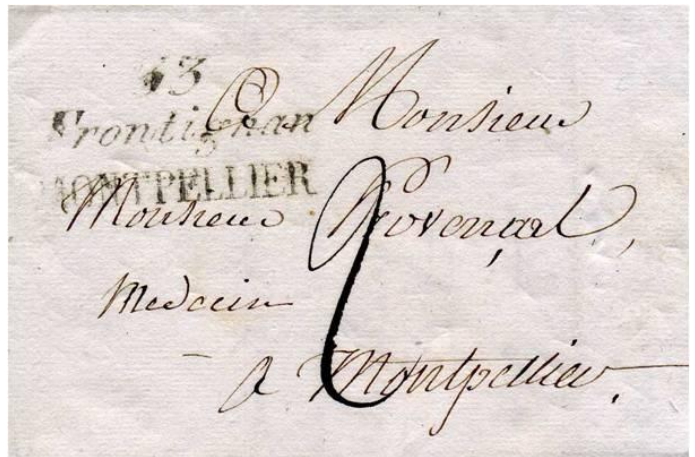 33
Frontignan
MONTPELLIER
A Monsieur
Monsieur Provençal,
Medecin
a Montpellier.
2